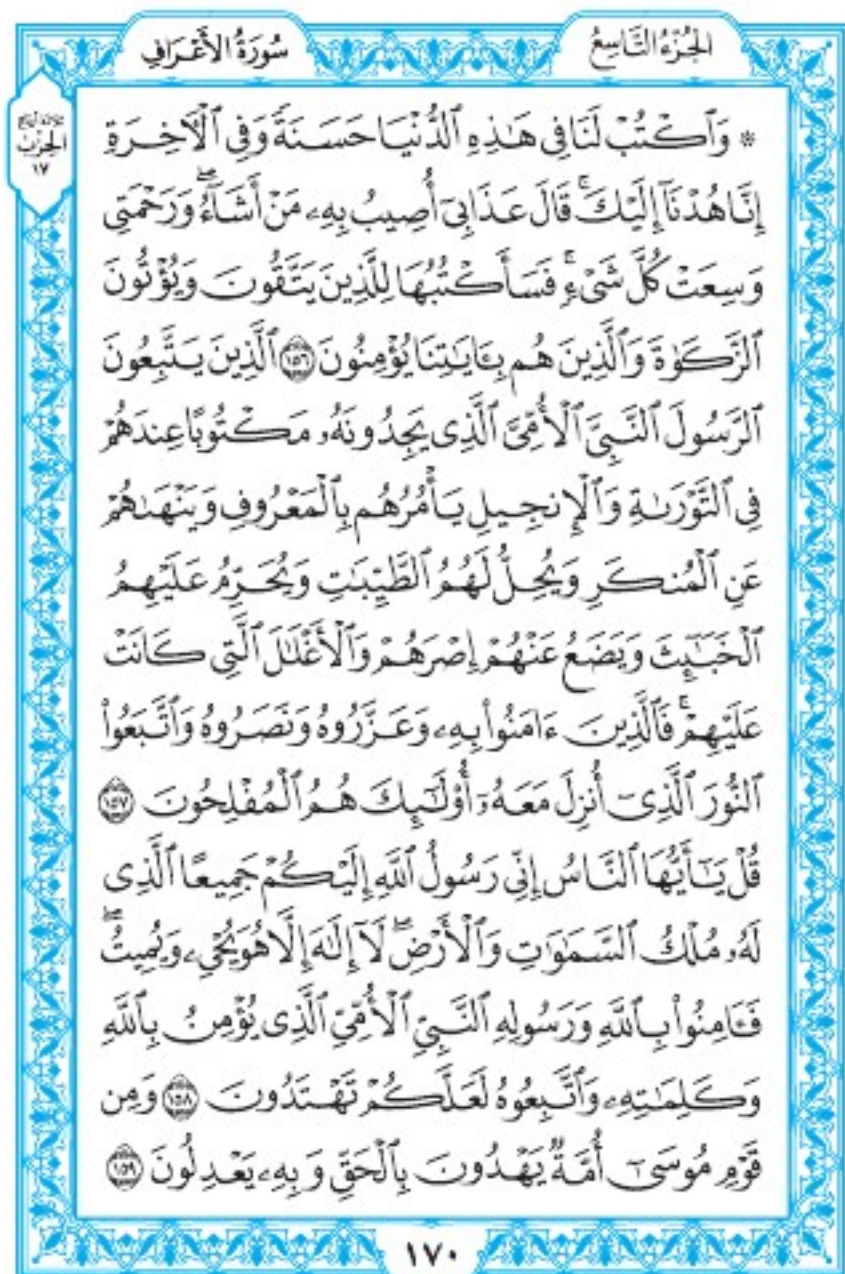 الجُزْءُ التَّاسِعُ
سُورَةُ الأَعْرَافِ
ثلاثة أرباع
الحزب
١٧
* وَٱكۡتُبۡ لَنَا فِي هَٰذِهِ ٱلدُّنۡيَا حَسَنَةٗ وَفِي ٱلۡأٓخِرَةِ
إِنَّا هُدۡنَآ إِلَيۡكَۚ قَالَ عَذَابِيٓ أُصِيبُ بِهِۦ مَنۡ أَشَآءُۖ وَرَحۡمَتِي
وَسِعَتۡ كُلَّ شَيۡءٖۚ فَسَأَكۡتُبُهَا لِلَّذِينَ يَتَّقُونَ وَيُؤۡتُونَ
ٱلزَّكَوٰةَ وَٱلَّذِينَ هُم بِـَٔايَٰتِنَا يُؤۡمِنُونَ ١٥٦ ٱلَّذِينَ يَتَّبِعُونَ
ٱلرَّسُولَ ٱلنَّبِيَّ ٱلۡأُمِّيَّ ٱلَّذِي يَجِدُونَهُۥ مَكۡتُوبًا عِندَهُمۡ
فِي ٱلتَّوۡرَىٰةِ وَٱلۡإِنجِيلِ يَأۡمُرُهُم بِٱلۡمَعۡرُوفِ وَيَنۡهَىٰهُمۡ
عَنِ ٱلۡمُنكَرِ وَيُحِلُّ لَهُمُ ٱلطَّيِّبَٰتِ وَيُحَرِّمُ عَلَيۡهِمُ
ٱلۡخَبَٰٓئِثَ وَيَضَعُ عَنۡهُمۡ إِصۡرَهُمۡ وَٱلۡأَغۡلَٰلَ ٱلَّتِي كَانَتۡ
عَلَيۡهِمۡۚ فَٱلَّذِينَ ءَامَنُواْ بِهِۦ وَعَزَّرُوهُ وَنَصَرُوهُ وَٱتَّبَعُواْ
ٱلنُّورَ ٱلَّذِيٓ أُنزِلَ مَعَهُۥٓ أُوْلَٰٓئِكَ هُمُ ٱلۡمُفۡلِحُونَ ١٥٧
قُلۡ يَٰٓأَيُّهَا ٱلنَّاسُ إِنِّي رَسُولُ ٱللَّهِ إِلَيۡكُمۡ جَمِيعًا ٱلَّذِي
لَهُۥ مُلۡكُ ٱلسَّمَٰوَٰتِ وَٱلۡأَرۡضِۖ لَآ إِلَٰهَ إِلَّا هُوَ يُحۡيِۦ وَيُمِيتُۖ
فَـَٔامِنُواْ بِٱللَّهِ وَرَسُولِهِ ٱلنَّبِيِّ ٱلۡأُمِّيِّ ٱلَّذِي يُؤۡمِنُ بِٱللَّهِ
وَكَلِمَٰتِهِۦ وَٱتَّبِعُوهُ لَعَلَّكُمۡ تَهۡتَدُونَ ١٥٨ وَمِن
قَوۡمِ مُوسَىٰٓ أُمَّةٞ يَهۡدُونَ بِٱلۡحَقِّ وَبِهِۦ يَعۡدِلُونَ ١٥٩
١٧٠